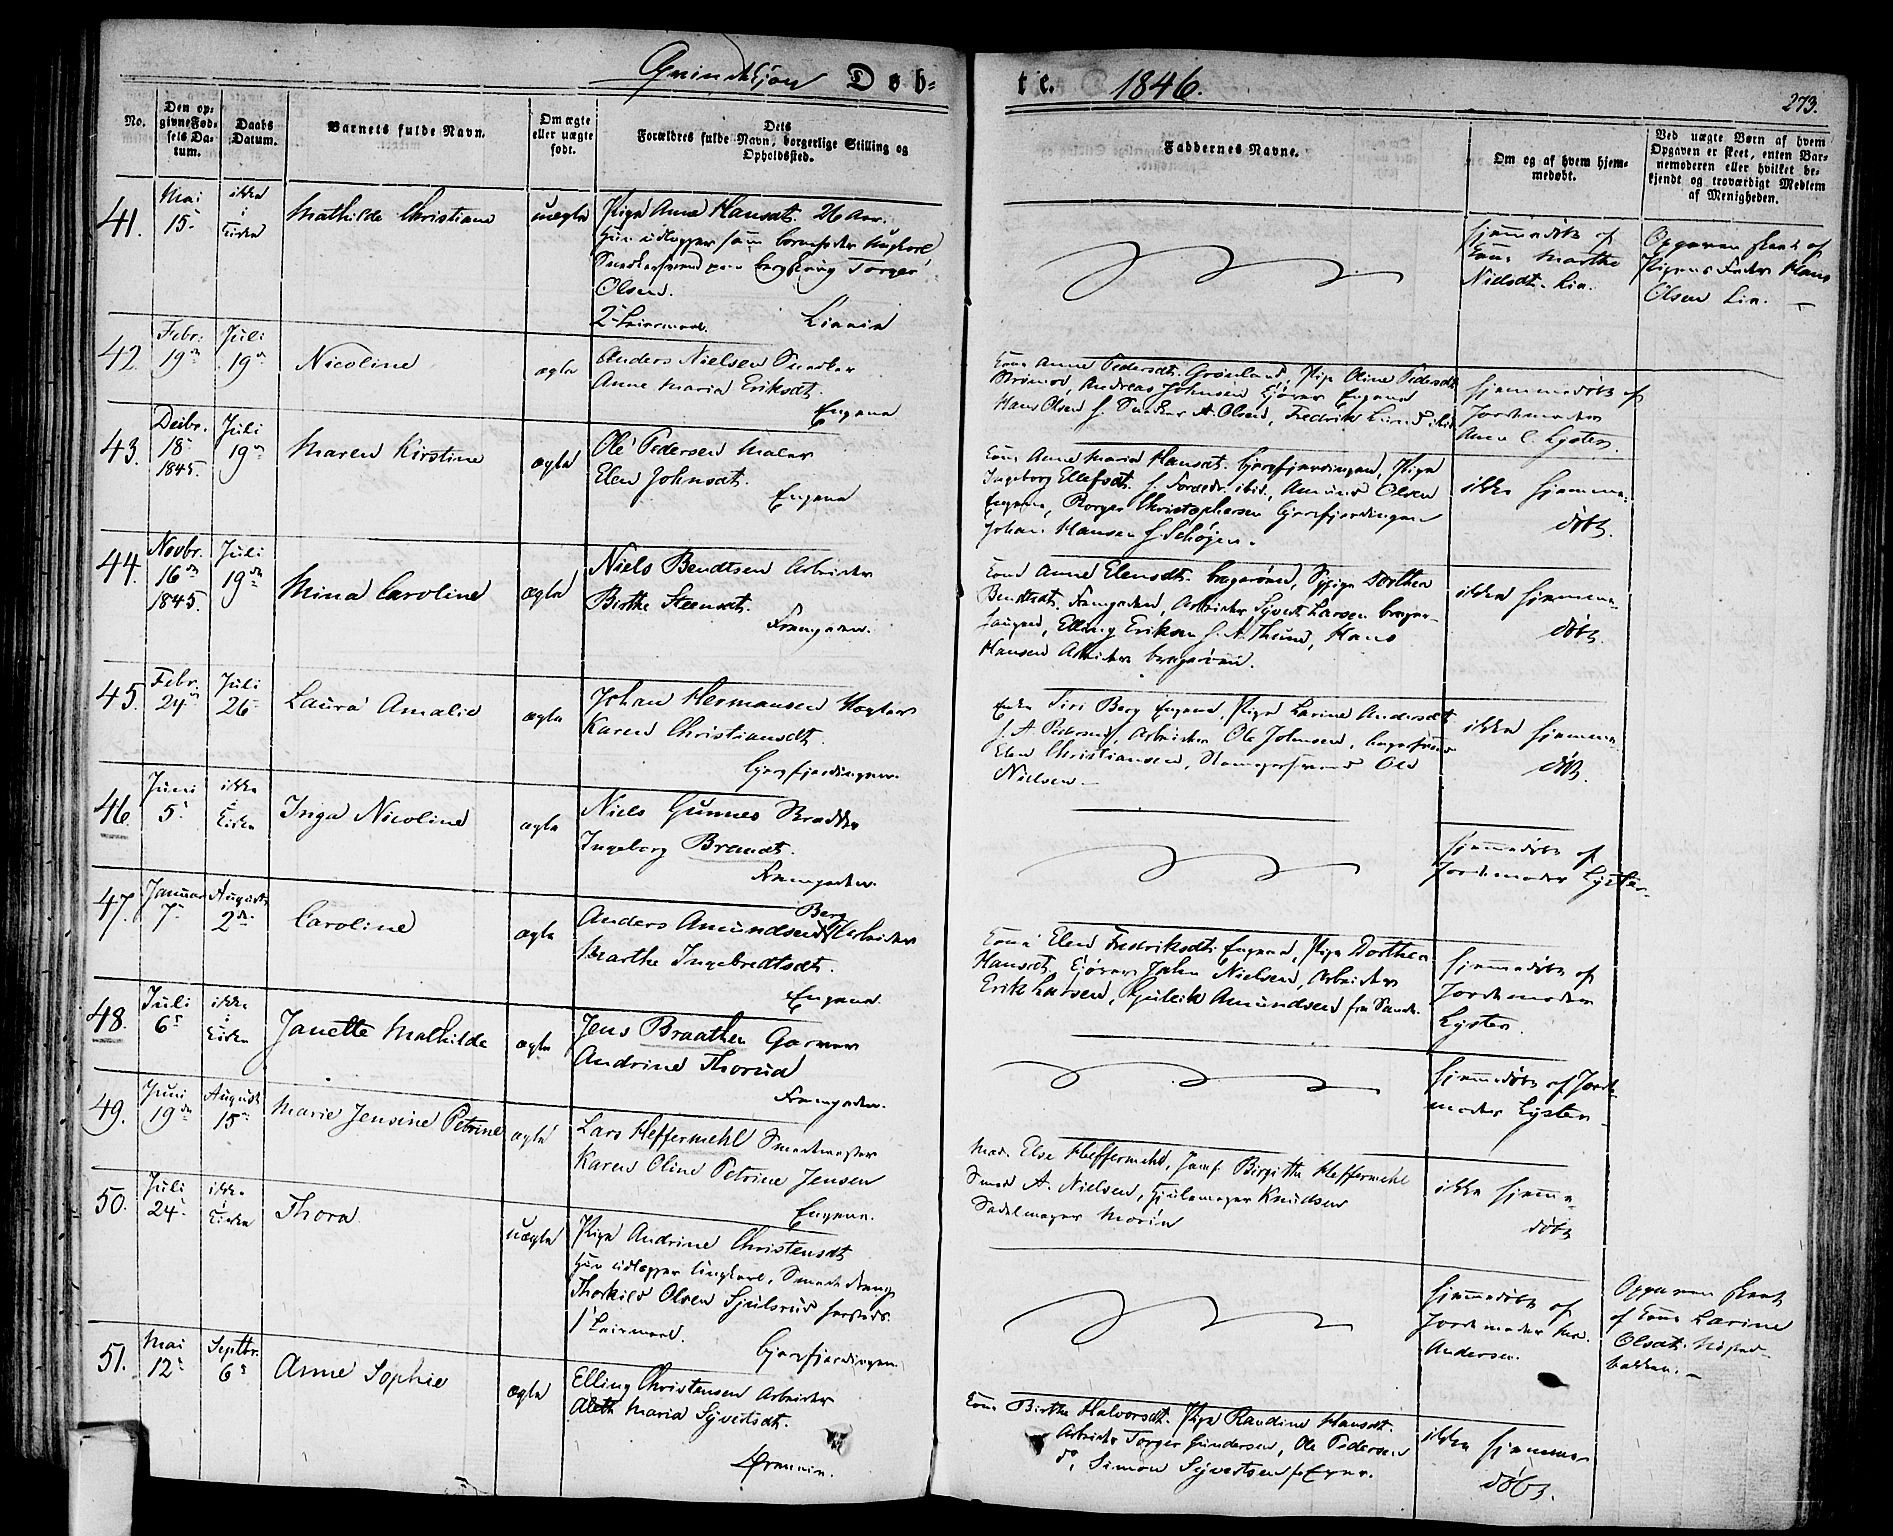 Qvindekjøn Døb-
te. 1846.
273.
No.
Den op-
givne Fød-
sels Da-
tum.
Daabs
Datum.
Barnets fulde Navn.
Om ægte
eller uægte
født.
Dets
Forældres fulde Navn, borgerlige Stilling og
Opholdssted.
Faddernes Navne.
Om og af hvem hjem-
medøbt.
Ved uægte Børn af hvem
Opgaven er skeet, enten Bar-
nemoderen eller hvilket be-
kjendt og troværdigt Medlem
af Menigheden.
41.
Mai
15
ikke
i
Kirken
Mathilde Christiane
uægte
Pige Anne Hansdt. 26 Aar.
Hun udlægger som barnefader Ungkarl
Torger
Olsen.
2 Leiermaal.
hjemmedøbt af
Kone Marthe
Nielsdt. Lia.
Opgaven skeet af
Pigens Fader Hans
Olsen Lia.
42.
Febr.
19de
Juli
19de
Nicoline
ægte
Anders Nielsen Snedker
Anne Maria Eriksdt.
Engene
Kone Anne Pedersdt. Grønland, Pige Oline Pedersdt.
Strømsø, Andreas Johnsen Kjører Engene
Hans Olsen f. Snedker A. Olsen, Fredrik Lund ibid.
hjemmedøbt af
Jordemoder
Anne C. Lyster.
43.
Decbr.
18
1845.
Juli
19de
Maren Kirstine
ægte
Ole Pedersen Maler
Elen Johnsdt.
Engene
Kone Anne Maria Hansdt. Bjergfjerdingen, Pige
Ingeborg Ellefsdt. f. ibid., Amund Olsen
Engene, Borger Christophersen Bjergfjerdingen
Johan Hansen f. Schøjen.
ikke hjemme-
døbt.
44.
Novbr.
16de
1845.
Juli
19de
Mina Caroline
ægte
Niels Bendtsen Arbeider
Birthe Steensdt.
Tromgaden.
Kone Anne Elensdt. Bragerøen, Sypige Dorthea
Bendtsdt. Tromgaden, Arbeider Syvert Larsen Brager-
Elling Eriksen f. A. Thund, Hans
Hansen Arbeider Bragerøen.
ikke hjemme-
døbt.
45.
Febr.
24de
Juli
26
Laura Amalie
ægte
Johan Hermansen Vogter
Karen Christiansdt.
Bjergfjerdingen.
Enke Siri Berg Engene, Pige Larine Andersdt.
f. A. Pedersen, Arbeider Ole Johnsen,
Elen Christiansen, Ole
Nielsen.
ikke hjemme-
døbt.
46
Juni
5
ikke
i
Kirken
Inga Nicoline
ægte
Niels Gunnes
Ingeborg Brandt.
Tromgaden.
hjemmedøbt af
Jordemoder Lyster.
47.
Januar
7
August
2de
Caroline
ægte
Anders Amundsen Berg Arbeider
Marthe Ingebredtsdt.
Engene.
Kone Elen Fredriksdt. Engene, Pige Dorthea
Hansdt. Kjører John Nielsen, Arbeider
Erik Larsen, Gulleik Amundsen fra Sande.
hjemmedøbt af
Jordemoder
Lyster.
48.
Juli
6
ikke
i
Kirken
Janette Mathilde
ægte
Jens Braathen Garver
Andrine Thorud
Tromgaden.
hjemmedøbt af Jorde-
moder Lyster.
49.
Juni
19de
August
15
Marie Jensine Petrine
ægte
Lars Heffermehl Smedmester
Karen Oline Petrine Jensen
Engene.
Mad. Else Heffermehl, Jomf. Birgitte Heffermehl
Smed A. Nielsen, Hjulemager Knudsen
Sadelmager Morin
ikke hjemme-
døbt
50.
Juli
24
ikke
i
Kirken
Thora
uægte
Pige Andrine Christensdt
Hun udlægger Ungkarl, Smededreng
Thorkild Olsen Sjulsrud
1 Leiermaal.
Bjergfjerdingen.
hjemmedøbt af
Jordemoder Md.
Andersen.
Opgaven skeet
af Kone Larine
Olsdt.
bakken.
51.
Mai
12
Septbr.
6
Anne Sophie
ægte
Elling Christensen Arbeider
Aleth Maria Syvertsdt.
Kone Birthe Halvorsdt. Pige Randine Hansdt.
Arbeider Torger Gundersen, Ole Pedersen
do, Simon Syvertsen
ikke hjemme-
døbt.